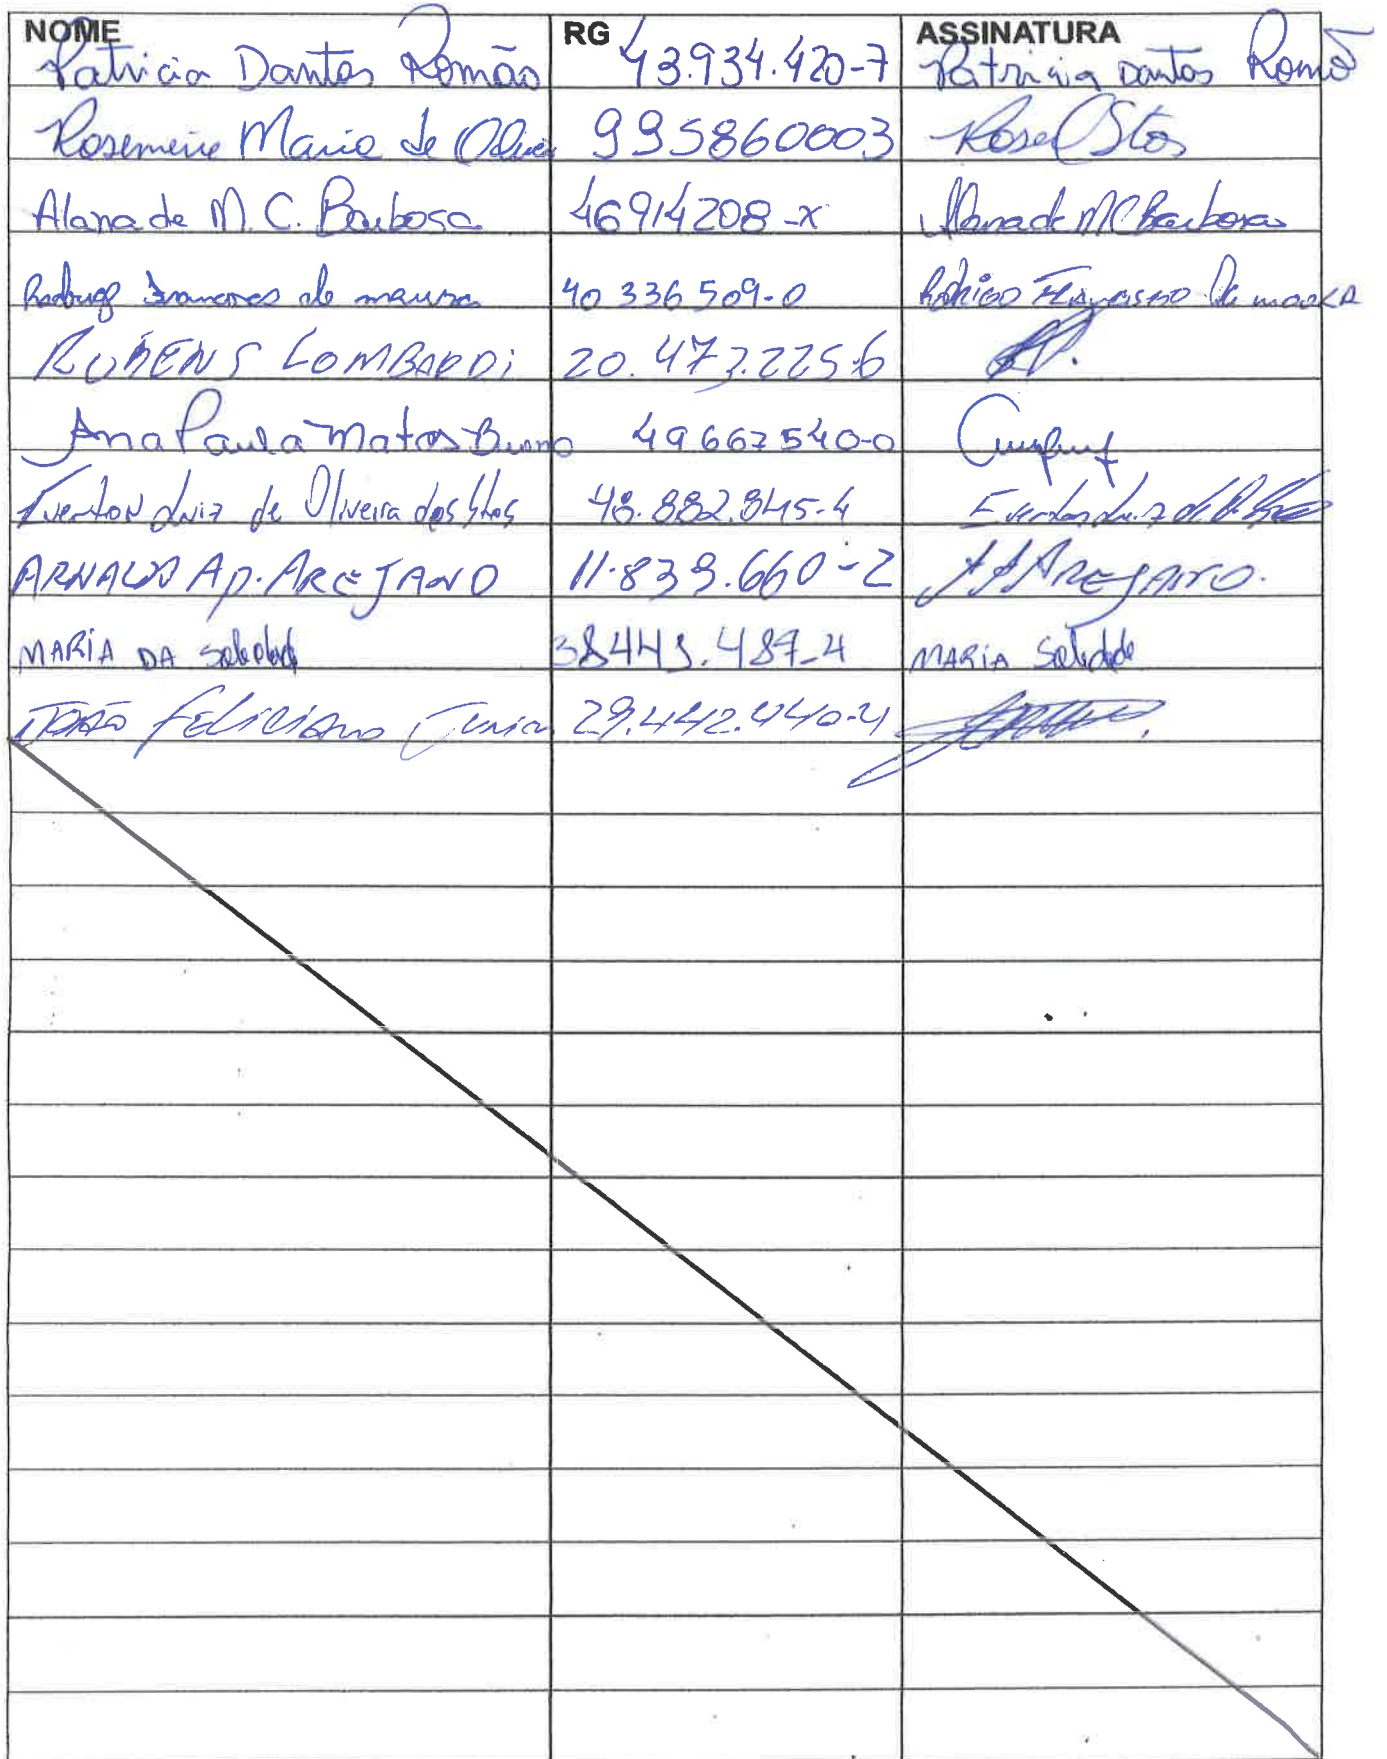 NOME RG ASSINATURA
Patricia Dantas Romão 43.934.420-7 Patricia Dantas Romão
Rosemeire Maria de 995860003 Rose Stos
Alana de M. C. Barbosa 46914208-x Alana de M C Barbosa
de moura 40 336 509-0 Rodrigo de
RUBENS LOMBARDi 20.473.225-6
Ana Paula Matos Bueno 49667540-0
Everton Luiz de Oliveira dos Stos 48.882.845-4 Everton Luiz d
ARNALDO AP. AREJANO 11.839.660-2 AREJANO.
MARiA DA Soledade MARiA Soledade
JOÃO FELICIANO Junior 29.442.440-4